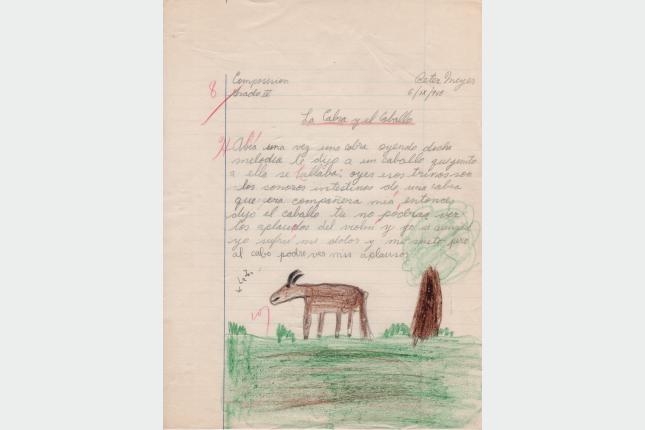 8
Composicion
Grado IV
Peter Meyer
La Cabra y el Caballo
Abía una vez una cabra oyendo dicha
melodia le dijo a un caballo que junto
a ella se allaba; oyes esos trinos son
los sonoros intestinos de una cabra
que era compañera mia entonces
dijo el caballo tu no podras ver
los aplausos del violin y yo
yo sufrí mi dolor y mi pero
al cabo podre ver mis aplausos